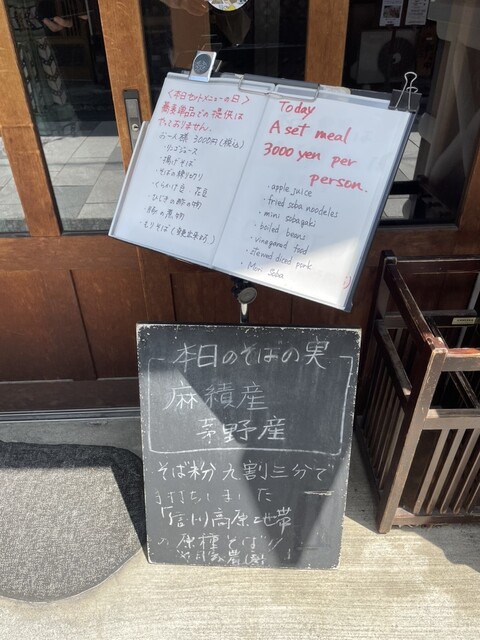 〈本日セットメニューの日〉
蕎麦単品での提供は
しておりません。
お一人様 3000円(税込)
・リンゴジュース
・揚げそば
・そばの練り切り
・ひじきの酢の物
・豚の煮物
・もりそば
Today
A set meal
3000 yen per
person.
・apple juice
・fried soba noodeles
・mini sobagaki
・boiled beans
・vinegared food
・stewed diced pork
・Mori Soba
本日のそばの実
麻績産
茅野産
そば粉 九割三分で
打ちました
「信州高原地帯
の原種そば」